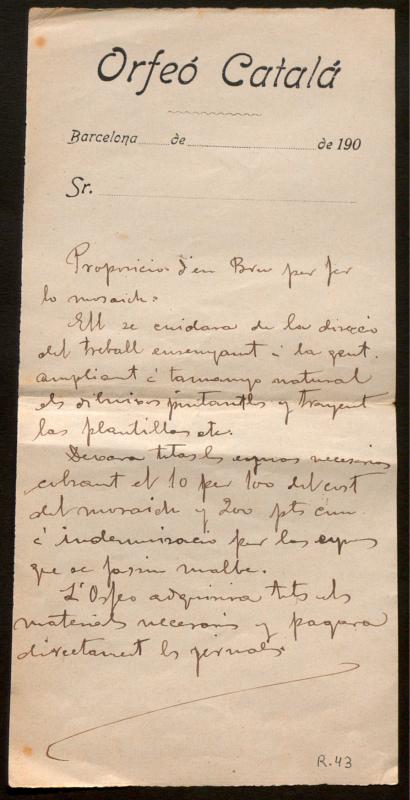 Orfeó Catalá
Barcelona de de 190
Sr.
Proposicio d'en Bru per fer
lo mosaich:
Ell se cuidara de la direcció
del treball ensenyant á la gent.
ampliant á tamanyo natural
els dibuixos pintantlos y trayent
las plantillas etc.
Deixara totas las eynas necesarias
cobrant el 10 per 100 del cost
del mosaich y 200 pts com
á indemnisació per las eynas
que se fassin malbe.
L'Orfeo adquirira tots els
materials necesaris y pagara
directament los jornals.
R.43